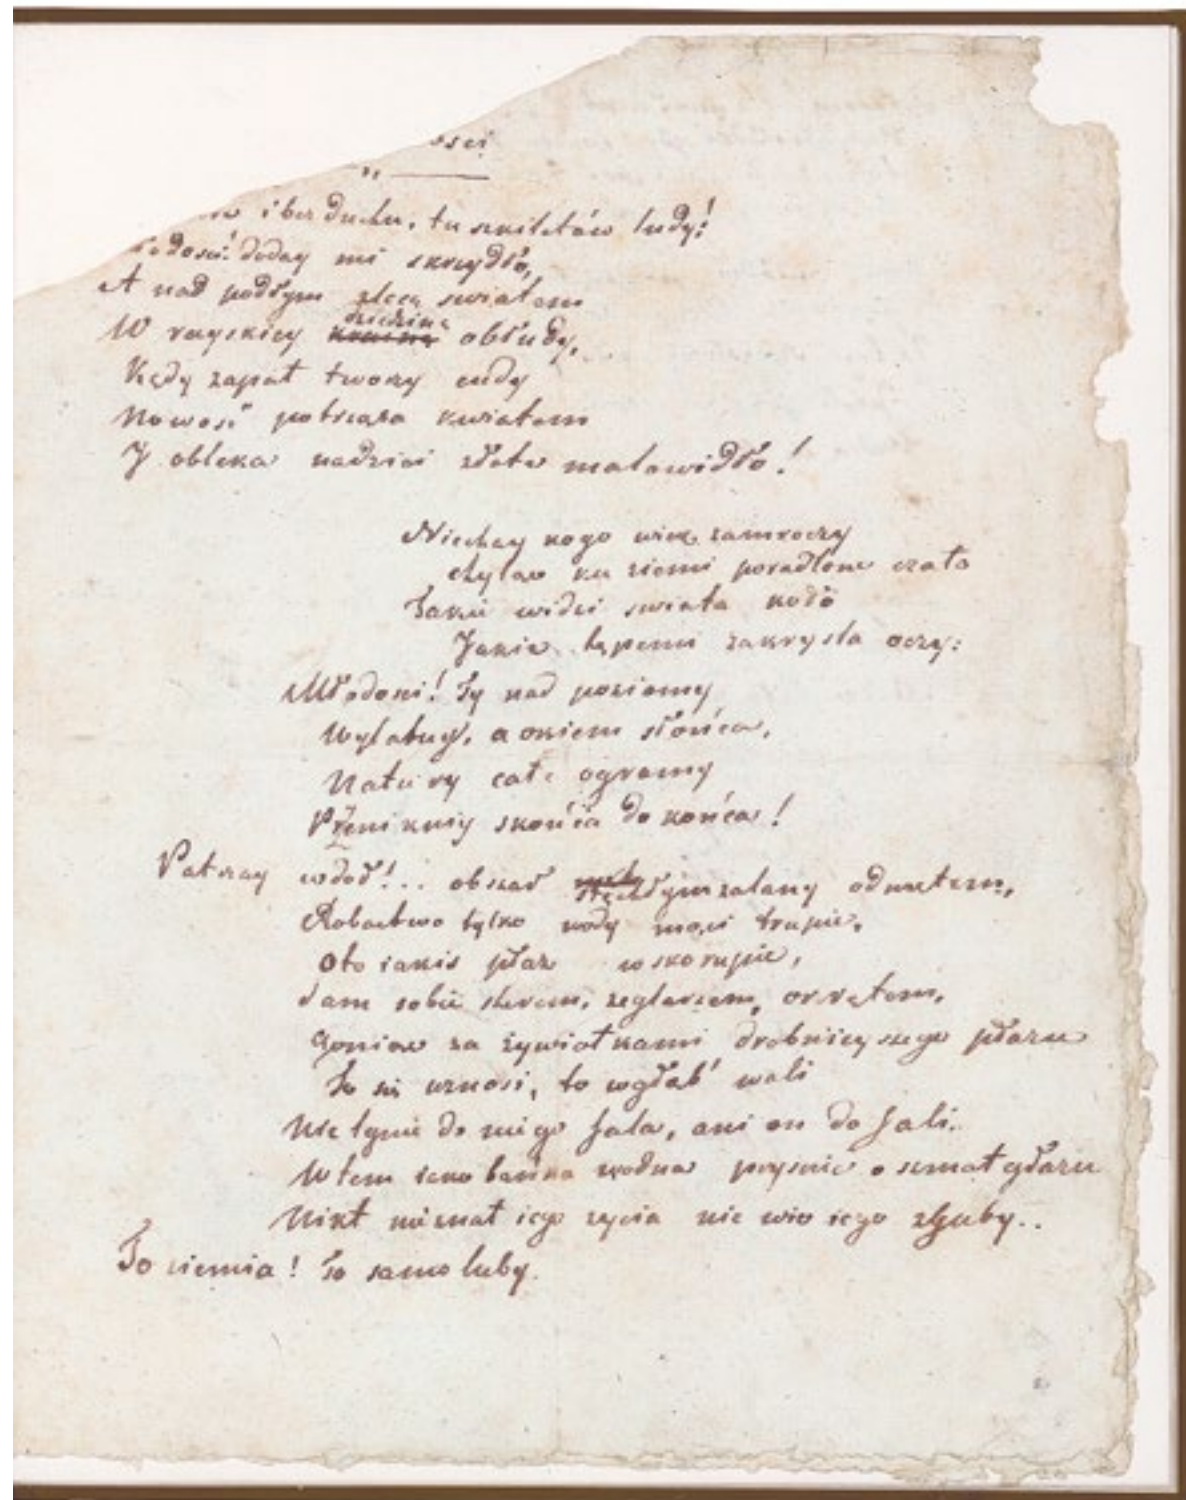 ości
i bez duchu, tu szkieletów ludy!
łodości! doday mi skrzydło,
A nad podłym zlecę światem
W rayskiey krainę dziedzinę obłudy,
Kędy zapał tworzy cudy
Nowość potrząsa kwiatem
J obleka nadziei złote malowidło!
Niechay kogo wiek zamroczy
chyląc ku ziemi poradlone czoło
Takie widzi świata koło
Jakie tępemi zakryśla oczy:
Młodości! Ty nad poziomy
Wylatuy, a okiem słońca,
Natury całe ogromy
Przeniknij z końca do końca!
Patrzay wdół!.. obszar zalany odmętem,
Robactwo tylko wody mąci trupie,
Oto iakiś płaz w skorupie,
Sam sobie sterem, żeglarzem, okrętem,
Goniąc za żywiołkami drobnieyszego płazu
To się wznosi, to wgłąb' wali
Nie lgnie do niego fala, ani on do fali.
Wtem iako bańka wodna pryśnie o szmat głazu
Nikt nieznał iego życia nie wie iego zguby..
To ziemia! To samoluby.